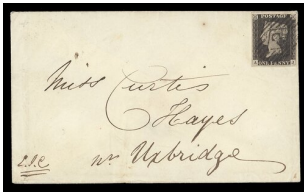 POSTAGE
ONE PENNY
Miss Curtis
Hayes
nr Uxbridge